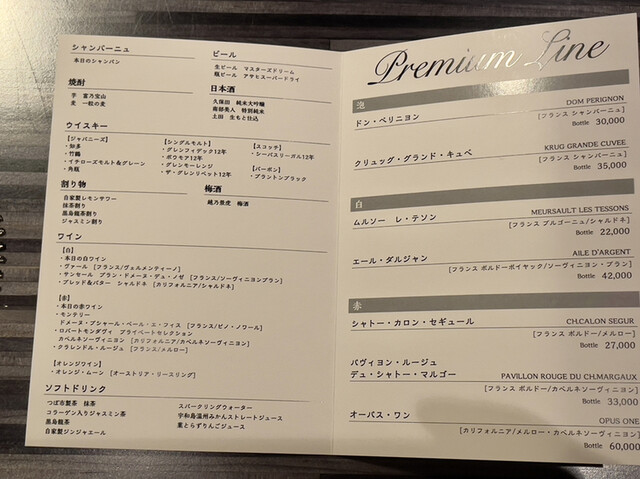 シャンパーニュ
本日のシャンパン
焼酎
芋 富乃宝山
麦 一粒の麦
ビール
生ビール マスターズドリーム
瓶ビール アサヒスーパードライ
日本酒
久保田 純米大吟醸
南部美人 特別純米
土田 生もと仕込
ウイスキー
【ジャパニーズ】
・知多
・竹鶴
・イチローズモルト&グレーン
・角瓶
【シングルモルト】
・グレンフィデック12年
・ボウモア12年
・グレンモーレンジ
・ザ・グレンリベット12年
【スコッチ】
・シーバスリーガル12年
【バーボン】
・ブラントンブラック
割り物
自家製レモンサワー
抹茶割り
黒烏龍茶割り
ジャスミン割り
梅酒
越乃景虎 梅酒
ワイン
【白】
・本日の白ワイン
・ヴァール [フランス/ヴェルメンティーノ]
・サンセール ブラン・ドメーヌ・デュ・ノゼ [フランス/ソーヴィニヨンブラン]
・ブレッド&バター シャルドネ [カリフォルニア/シャルドネ]
【赤】
・本日の赤ワイン
・モンテリー
ドメーヌ・ブシャール・ペール・エ・フィス [フランス/ピノ・ノワール]
・ロバートモンダヴィ プライベートセレクション
カベルネソーヴィニヨン [カリフォルニア/カベルネソーヴィニヨン]
・クラレンドル・ルージュ [フランス/メルロー]
【オレンジワイン】
・オレンジ・ムーン [オーストリア・リースリング]
ソフトドリンク
つぼ市製茶 抹茶
コラーゲン入りジャスミン茶
黒烏龍茶
自家製ジンジャエール
スパークリングウォーター
宇和島温州みかんストレートジュース
葉とらずりんごジュース
Premium Line
泡
ドン・ペリニヨン
DOM PERIGNON
[フランス シャンパーニュ]
Bottle 30,000
クリュッグ・グランド・キュベ
KRUG GRANDE CUVEE
[フランス シャンパーニュ]
Bottle 35,000
白
ムルソー レ・テソン
MEURSAULT LES TESSONS
[フランス ブルゴーニュ/シャルドネ]
Bottle 22,000
エール・ダルジャン
AILE D'ARGENT
[フランス ボルドーポイヤック/ソーヴィニヨン・ブラン]
Bottle 42,000
赤
シャトー・カロン・セギュール
CH.CALON SEGUR
[フランス ボルドー/メルロー]
Bottle 27,000
パヴィヨン・ルージュ
デュ・シャトー・マルゴー
PAVILLON ROUGE DU CH.MARGAUX
[フランス ボルドー/カベルネソーヴィニヨン]
Bottle 33,000
オーパス・ワン
OPUS ONE
[カリフォルニア/メルロー・カベルネソーヴィニヨン]
Bottle 60,000